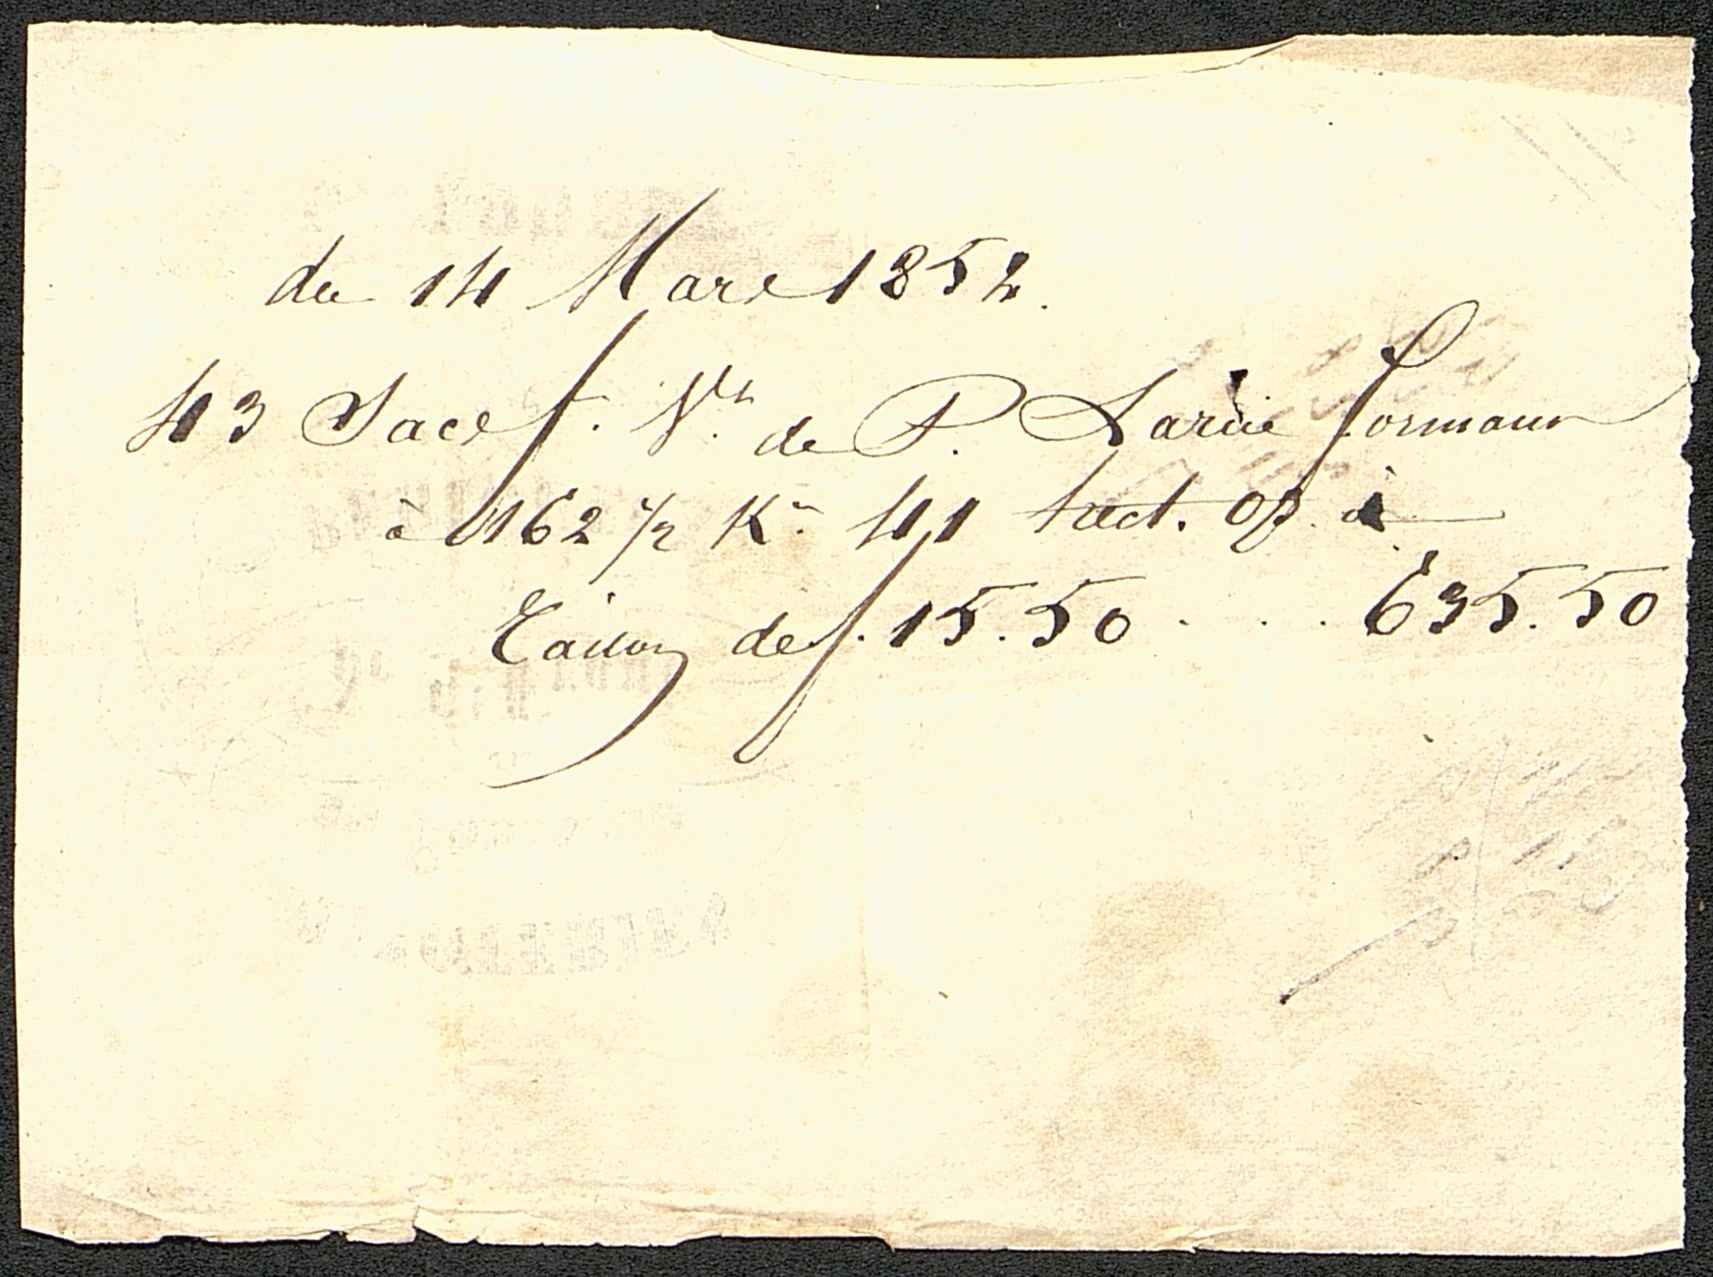 du 14 Mars 1852.
43 Sacs f. Vts de P. Larüe formant
à 162 1/2 Ko 41 hect. 0/0 à
raison de f. 15.50 . . . 635.50